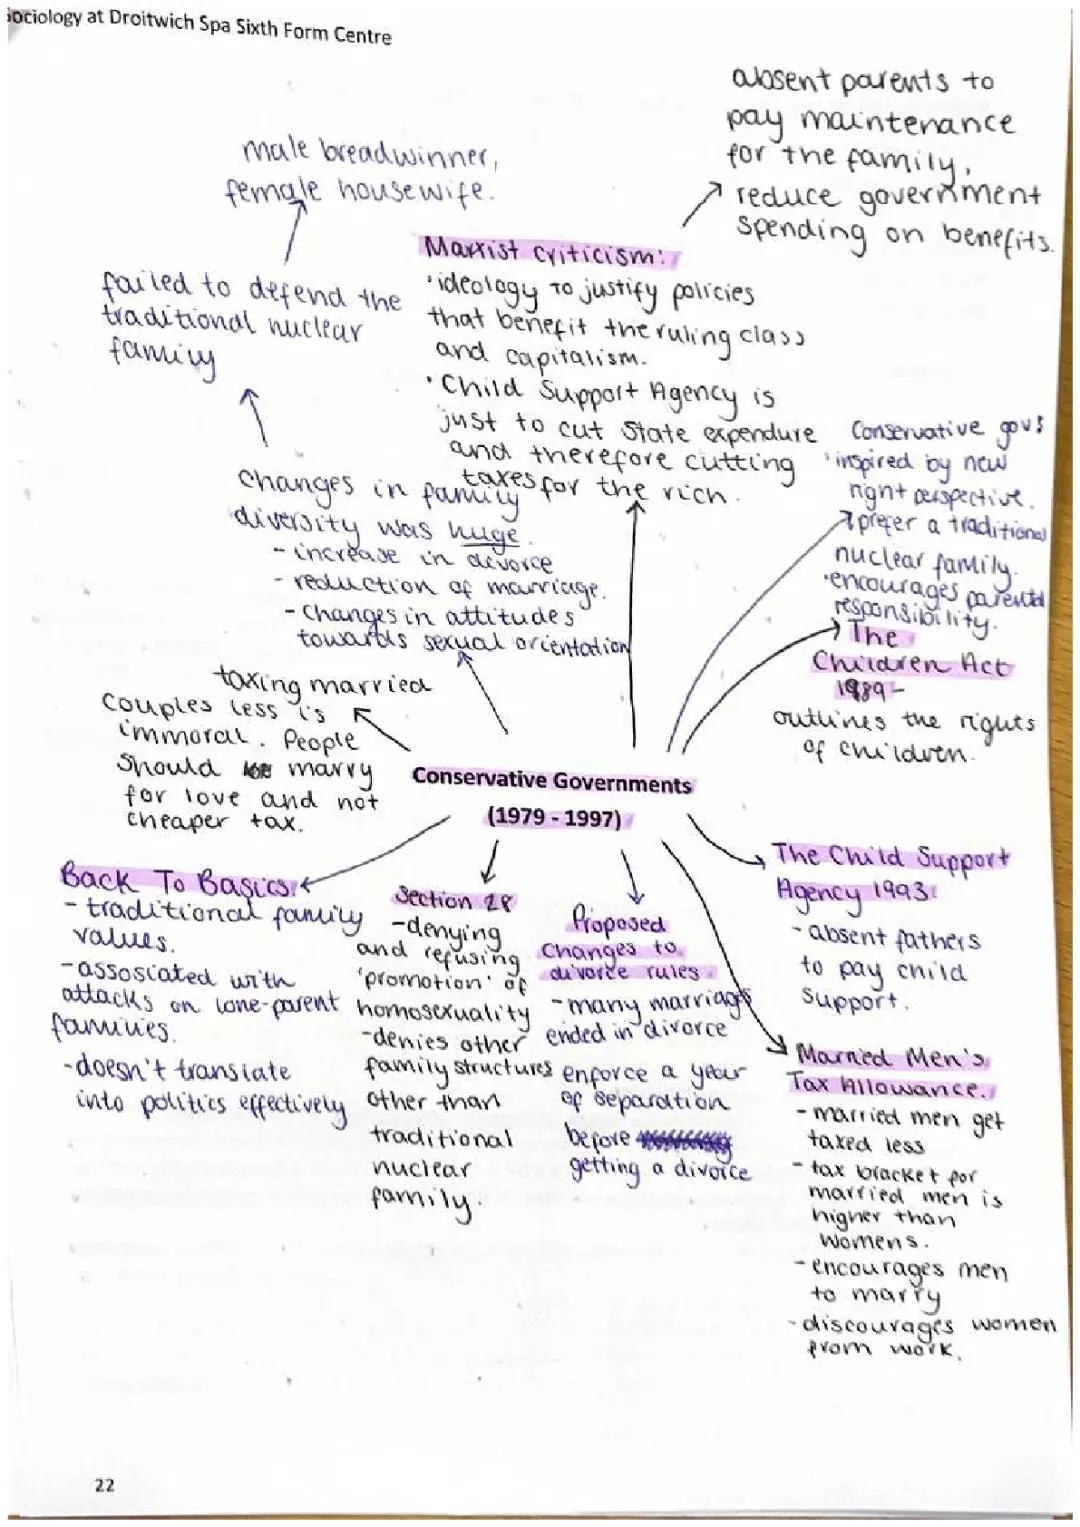 Sociology at Droitwich Spa Sixth Form Centre
absent parents to
pay maintenance
for the family,
reduce government
spending on benefits.
male breadwinner,
female housewife.
failed to defend the
traditional nuclear
family
Marxist Criticism:
·ideology to justify policies
that benefit the ruling class
and capitalism.
·Child Support Agency is
just to cut state expendure
and therefore cutting
taxes for the rich.
Conservative govs
·inspired by new
right perspective.
prefer a traditional
nuclear family.
·encourages parental
responsibility.
changes in family
diversity was huge.
- increase in divorce
- reduction of marriage.
- Changes in attitudes
towards sexual orientation
The
Children Act
1989 -
outlines the rights
of children.
taxing married
couples less is
immoral. People
should marry
for love and not
cheaper tax.
Conservative Governments
(1979 - 1997)
Back To Basics:
- traditional family
values.
- assosiated with
attacks on lone-parent
families.
- doesn't translate
into politics effectively
Section 28
- denying
and refusing
'promotion' of
homosexuality
- denies other
family structures
other than
traditional
nuclear
family.
Proposed
changes to
divorce rules.
- many marriages
ended in divorce
enforce a year
of separation
before
getting a divorce
The Child Support
Agency 1993:
- absent fathers
to pay child
support.
Married Men's
Tax Allowance.
- married men get
taxed less
- tax bracket for
married men is
higher than
womens.
- encourages men
to marry
- discourages women
from work.
22